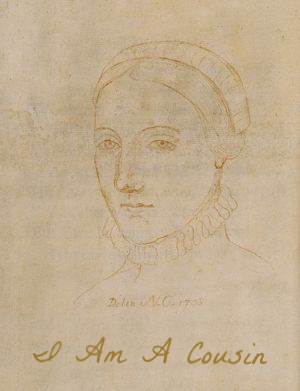 Delin N.C. 1708
I Am A Cousin